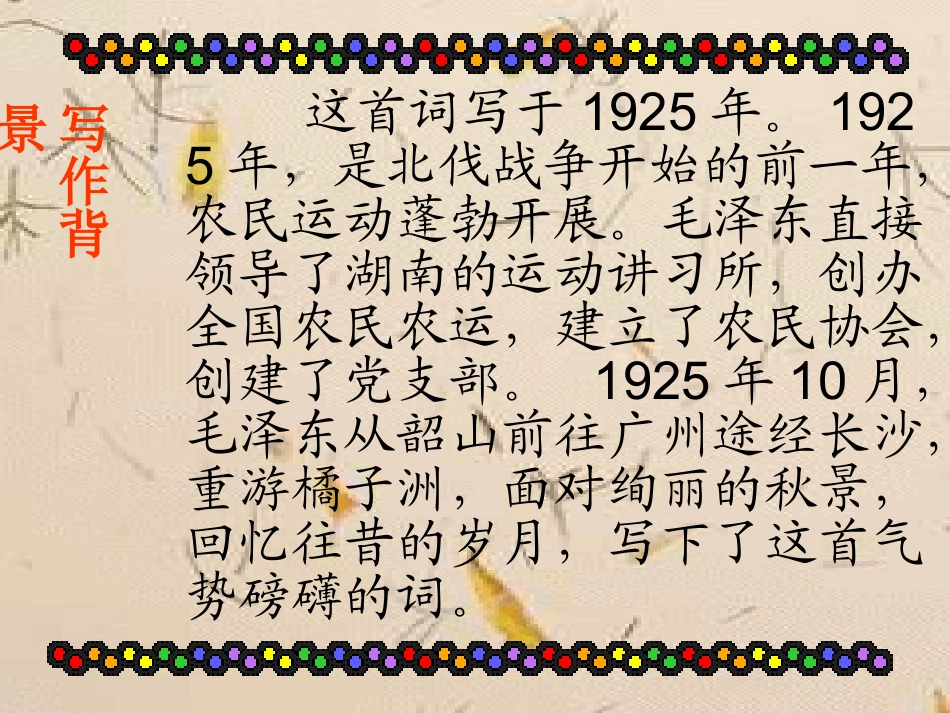 写作背
景
这首词写于 1925 年。 192
5 年，是北伐战争开始的前一年，
农民运动蓬勃开展。毛泽东直接
领导了湖南的运动讲习所，创办
全国农民农运，建立了农民协会，
创建了党支部。 1925 年 10 月，
毛泽东从韶山前往广州途经长沙，
重游橘子洲，面对绚丽的秋景，
回忆往昔的岁月，写下了这首气
势磅礴的词。